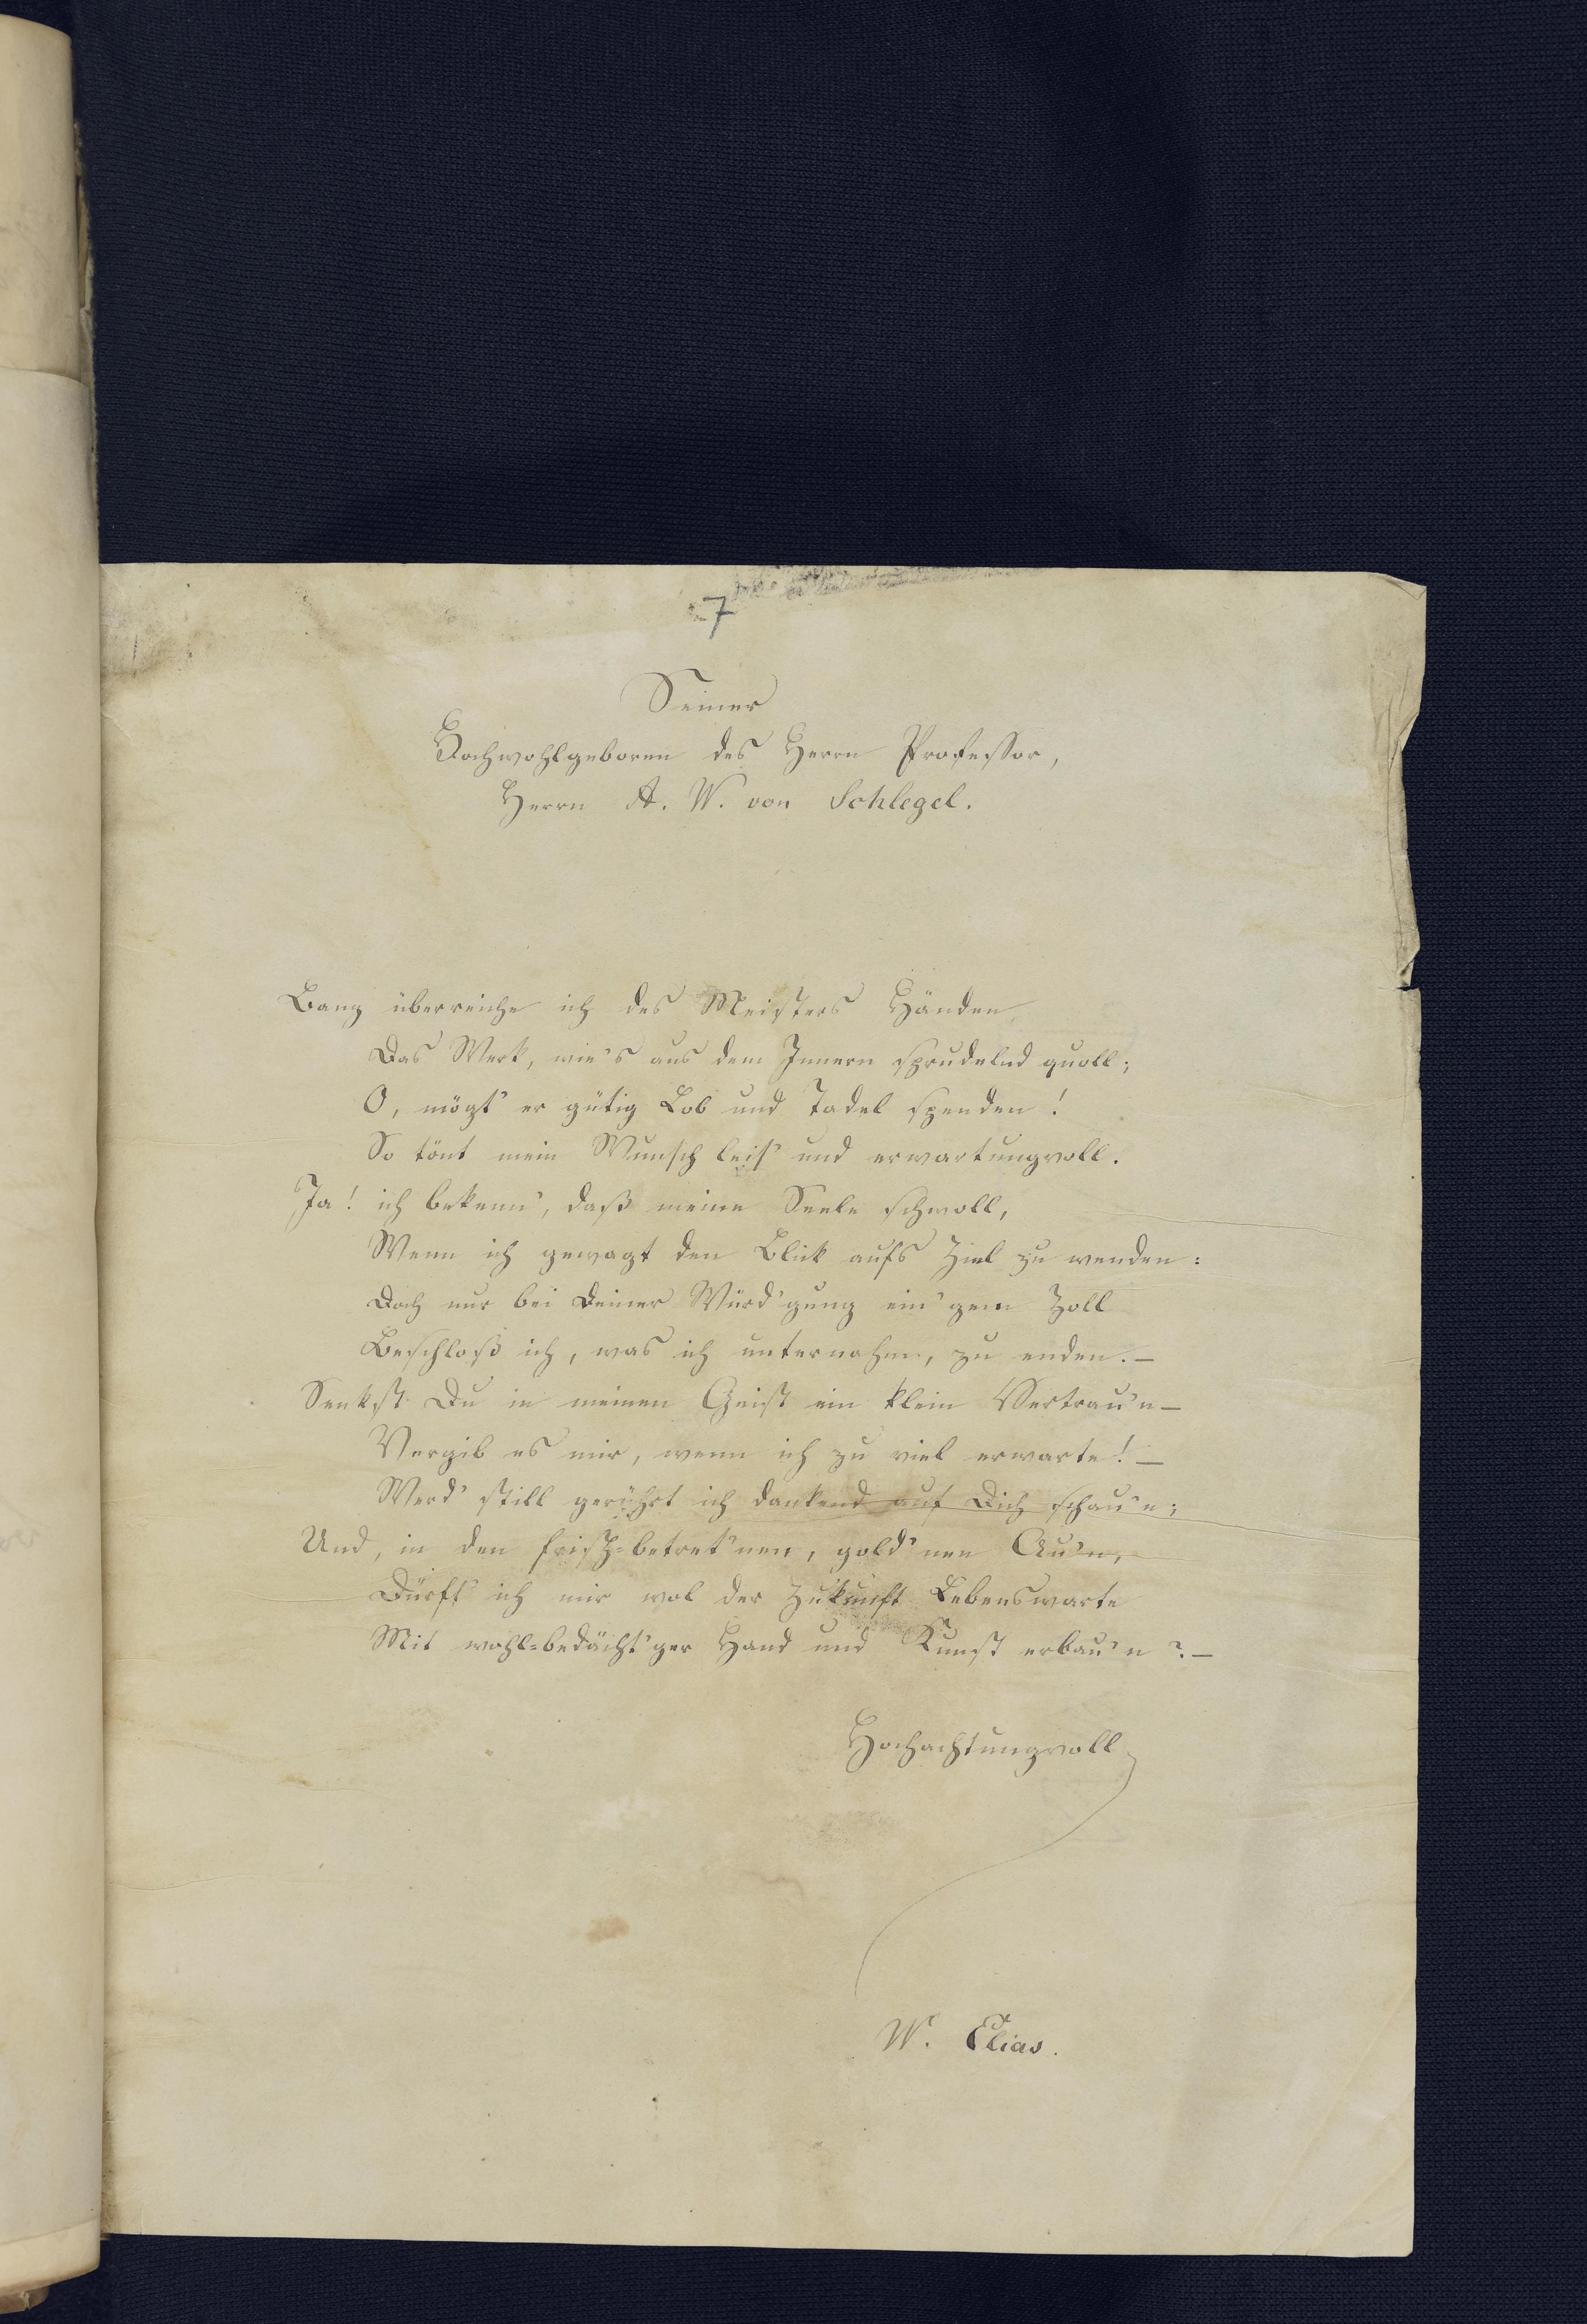 7
Seiner
Hochwohlgeboren des Herrn Professor,
Herrn A. W. von Schlegel.
Bang überreiche ich des Meisters Händen
Das Werk, wie's aus dem Innern sprudelnd quoll;
O, mögt' er gütig Lob und Tadel spenden!
So tönt mein Wunsch leis' und erwartungvoll.
Ja! ich bekenn', daß meine Seele schwoll,
Wenn ich gewagt den Blick aufs Ziel zu wenden:
Doch nur bei Deiner Würd'gung ein'gem Zoll
Beschloß ich, was ich unternahm, zu enden. –
Senkst Du in meinen Geist ein klein Vertrau'n –
Vergib es mir, wenn ich zu viel erwarte! –
Werd' still gerührt ich dankend auf Dich schau'n;
Und, in den frisch=betret'nen, gold'nen Au'n,
Dürft' ich mir wol der Zukunft Lebenswarte
Mit wohl=bedächt'ger Hand und Kunst erbau'n? –
Hochachtungvoll
W. Elias.